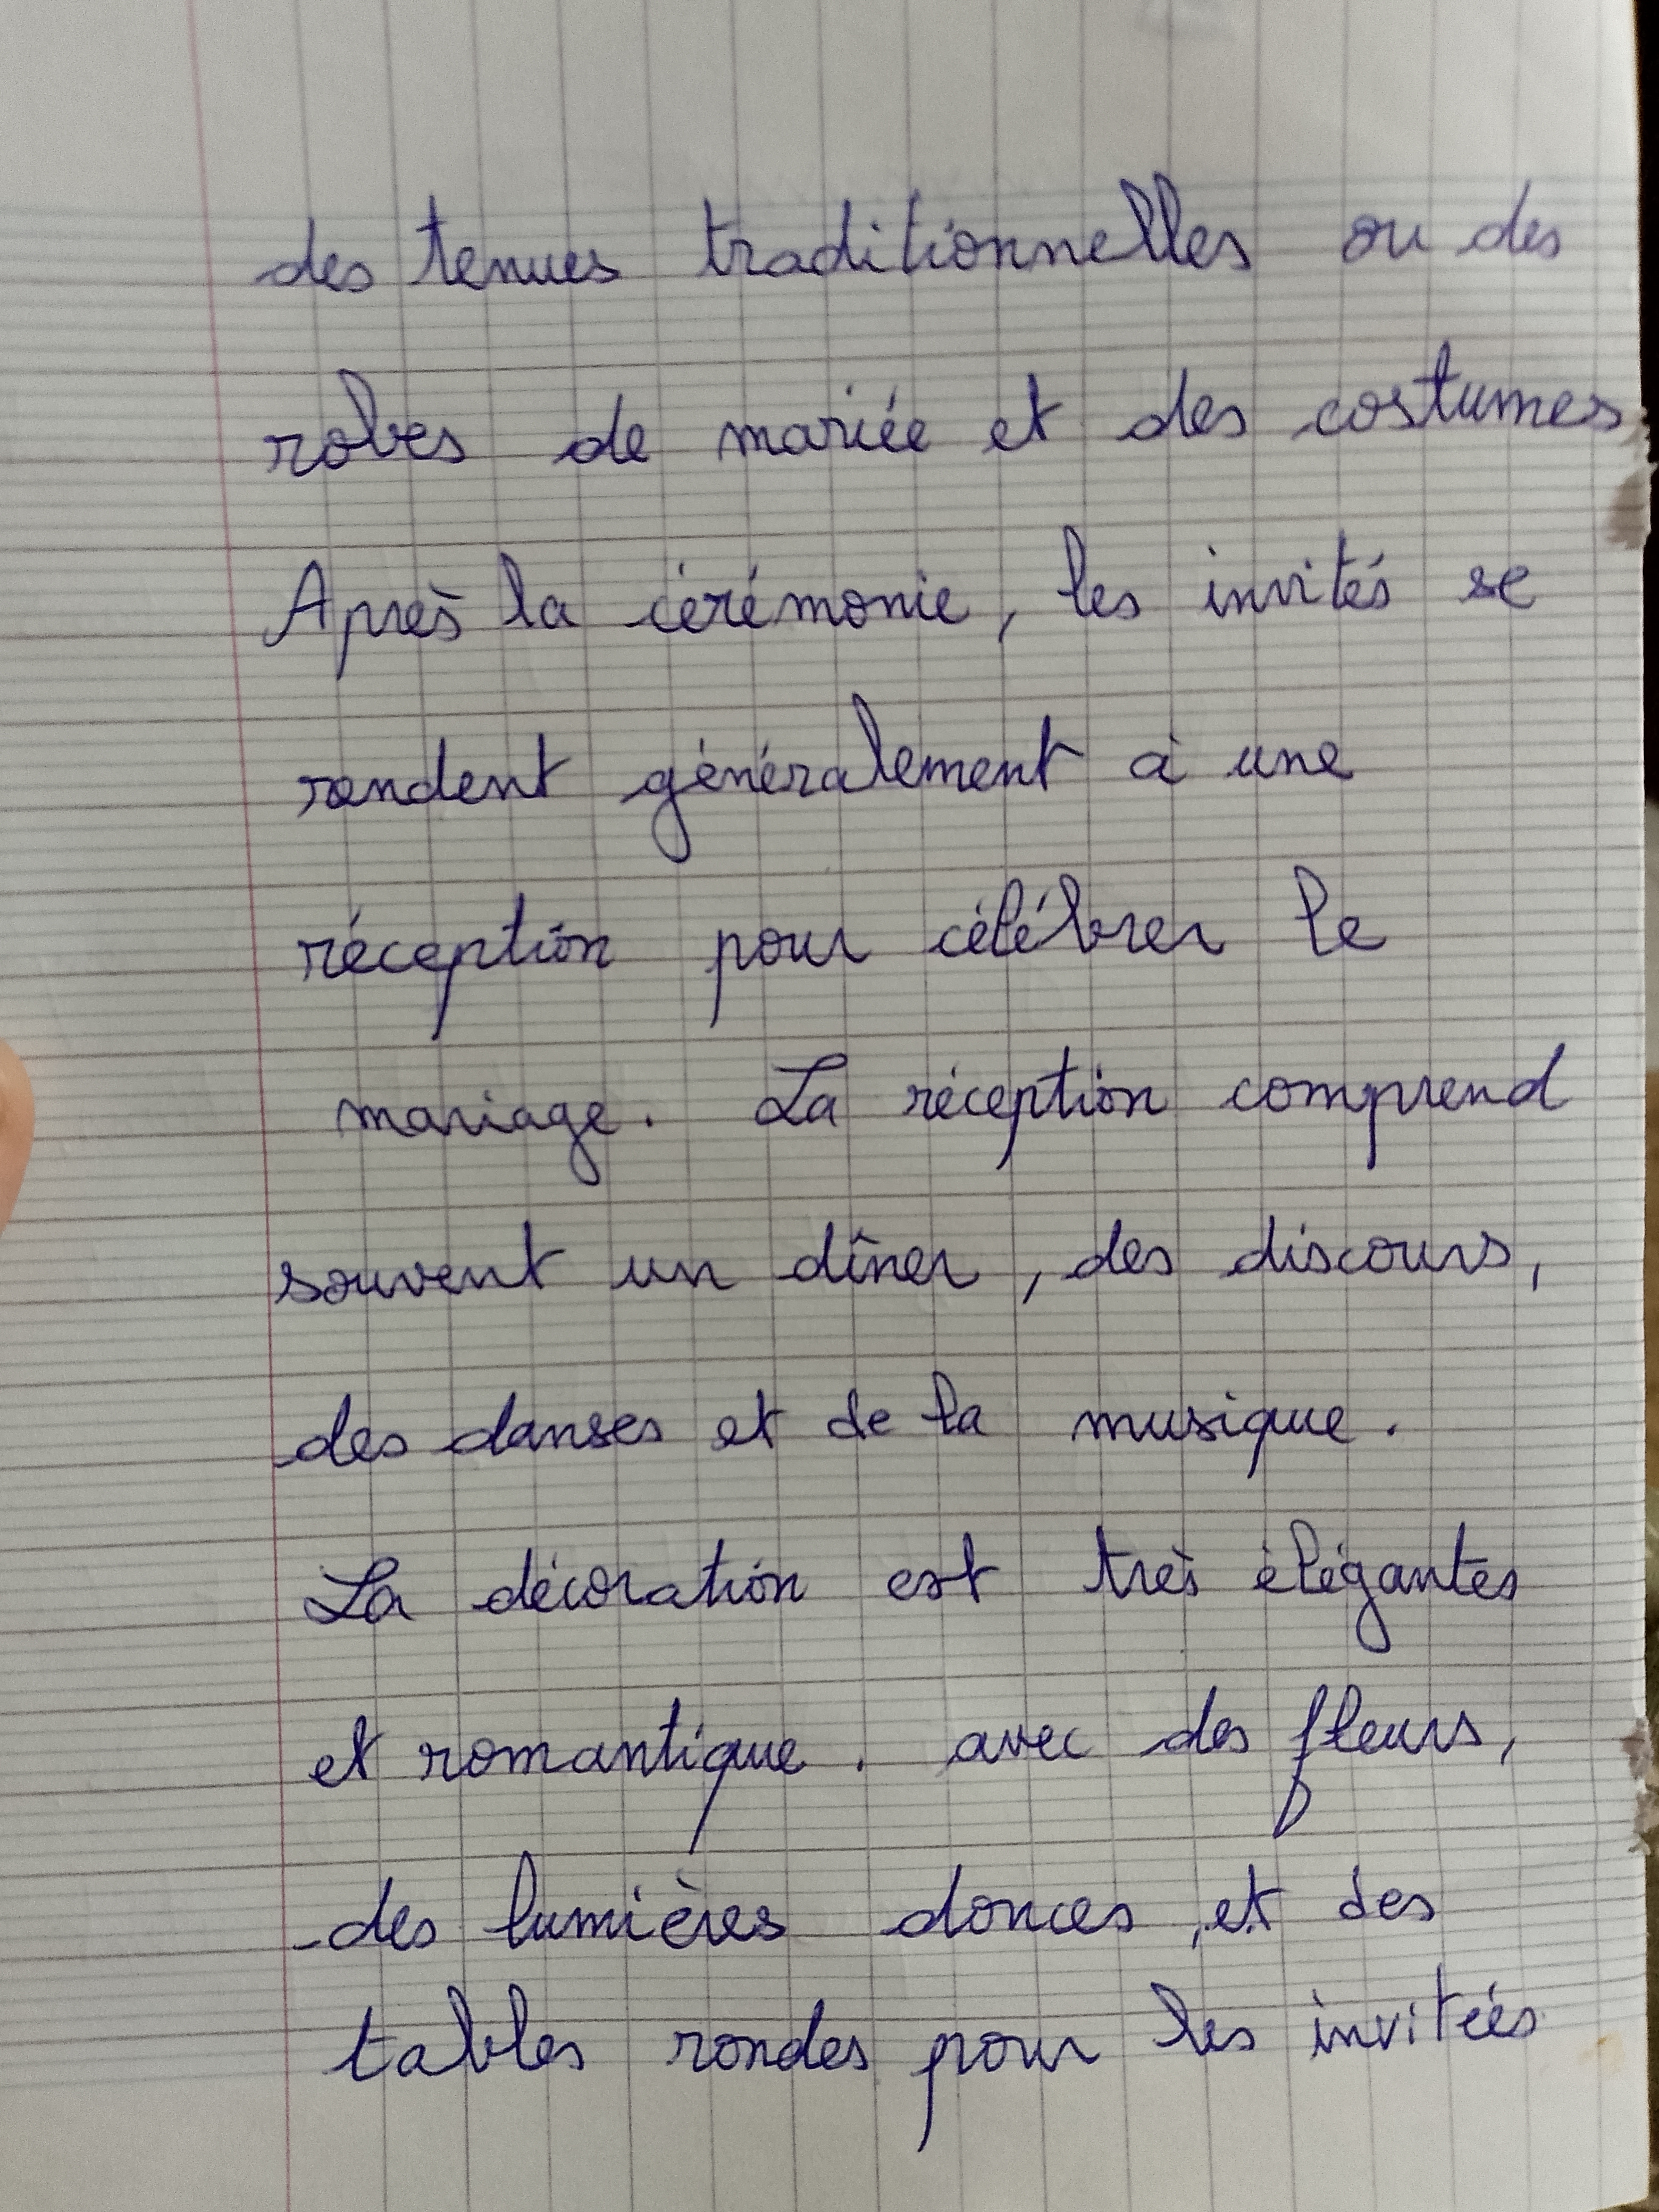 des tenues traditionnelles ou des
robes de mariée et des costumes
Après la cérémonie, les invités se
rendent généralement à une
réception pour célébrer le
mariage. La réception comprend
souvent un dîner, des discours,
des danses et de la musique.
La décoration est très élégantes
et romantique. avec des fleurs,
des lumières douces, et des
tables rondes pour les invitées